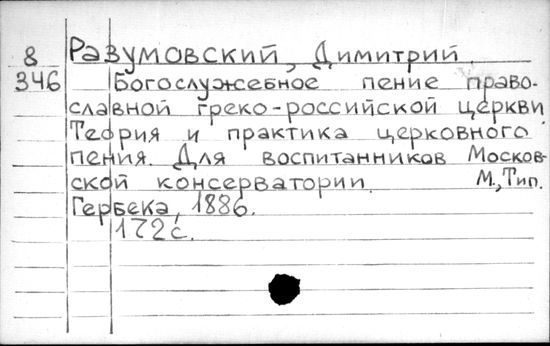 8 Разумовский, Димитрий.
346 Богослужебное пение право-
славной греко-российской церкви
Теория и практика церковного
пения. Для воспитанников Москов-
ской консерватории. М., Тип.
Гербека, 1886.
172 с.